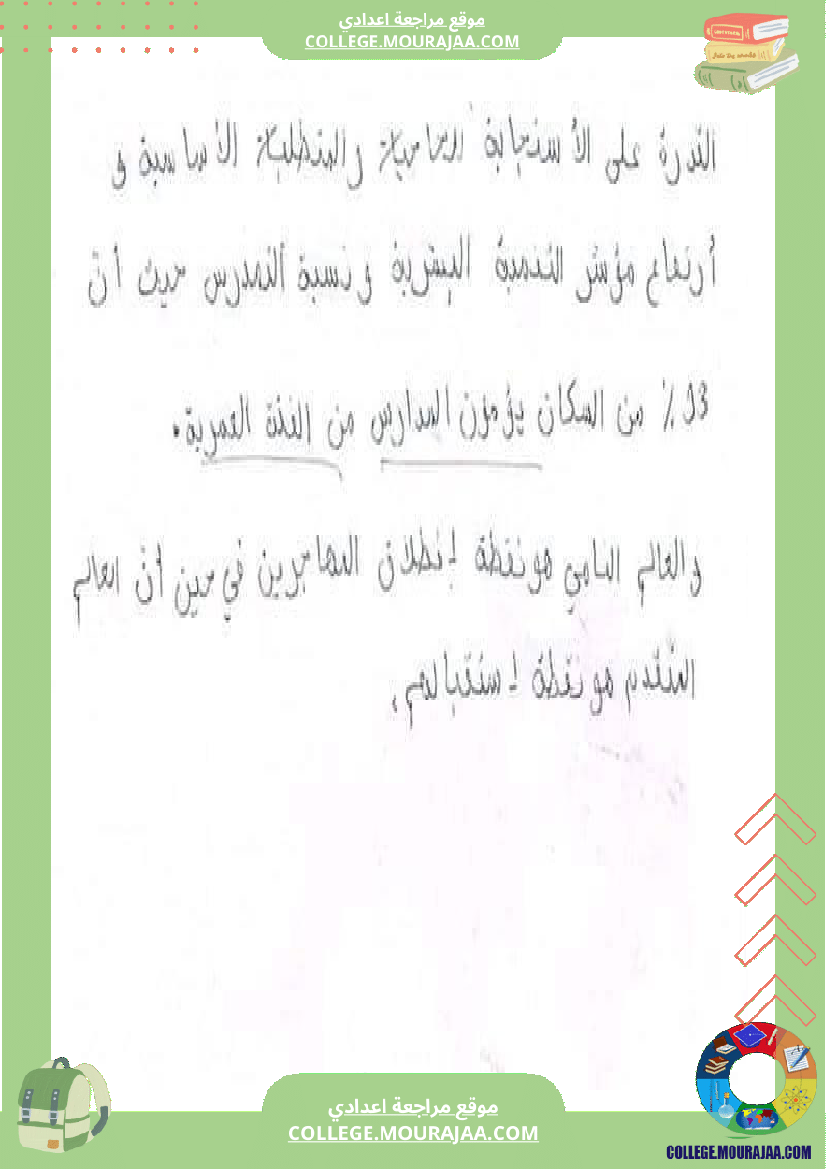 موقع مراجعة اعدادي
COLLEGE.MOURAJAA.COM
القدرة على الأستجابة للحاجية والمتطلبة الأساسية و
أرتفاع مؤشر التنمية البشرية ونسبة التمدرس حيث أن
93٪ من السكان يؤمون المدارس من الفئة العمرية.
والعالم النامي هو نقطة إنطلاق المهاجرين في حين أن العالم
المتقدم هو نقطة إستقبالهم.
موقع مراجعة اعدادي
COLLEGE.MOURAJAA.COM
COLLEGE.MOURAJAA.COM